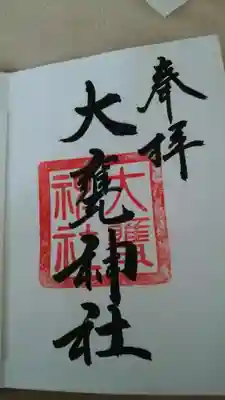 奉拝
大甕神社
大甕
神社